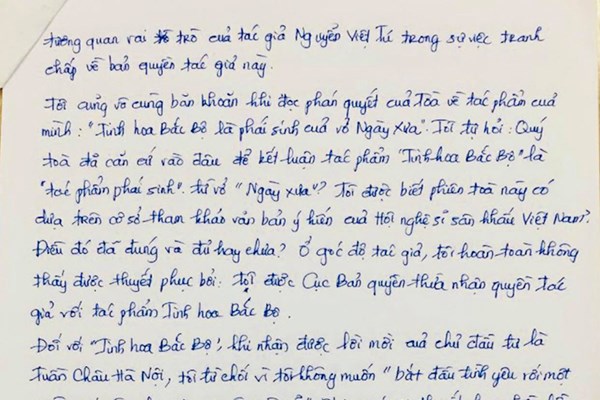 tương quan vai trò của tác giả Nguyễn Việt Tú trong sự việc tranh
chấp về bản quyền tác giả này.
Tôi cũng vô cùng băn khoăn khi đọc phán quyết của Toà về tác phẩm của
mình: "Tinh hoa Bắc Bộ là phái sinh của vở Ngày Xưa". Tôi tự hỏi: Quý
toà đã căn cứ vào đâu để kết luận tác phẩm "Tinh hoa Bắc Bộ" là
"tác phẩm phái sinh" từ vở "Ngày xưa"? Tôi được biết phiên toà này có
dựa trên cơ sở tham khảo văn bản ý kiến của Hội nghệ sĩ sân khấu Việt Nam?
Điều đó đã đúng và đủ hay chưa? Ở góc độ tác giả, tôi hoàn toàn không
thấy được thuyết phục bởi: tôi được Cục Bản quyền thừa nhận quyền tác
giả với tác phẩm Tinh hoa Bắc Bộ.
Đối với "Tinh hoa Bắc Bộ", khi nhận được lời mời của chủ đầu tư là
Tuần Châu Hà Nội, tôi từ chối vì tôi không muốn "bắt đầu tình yêu với một